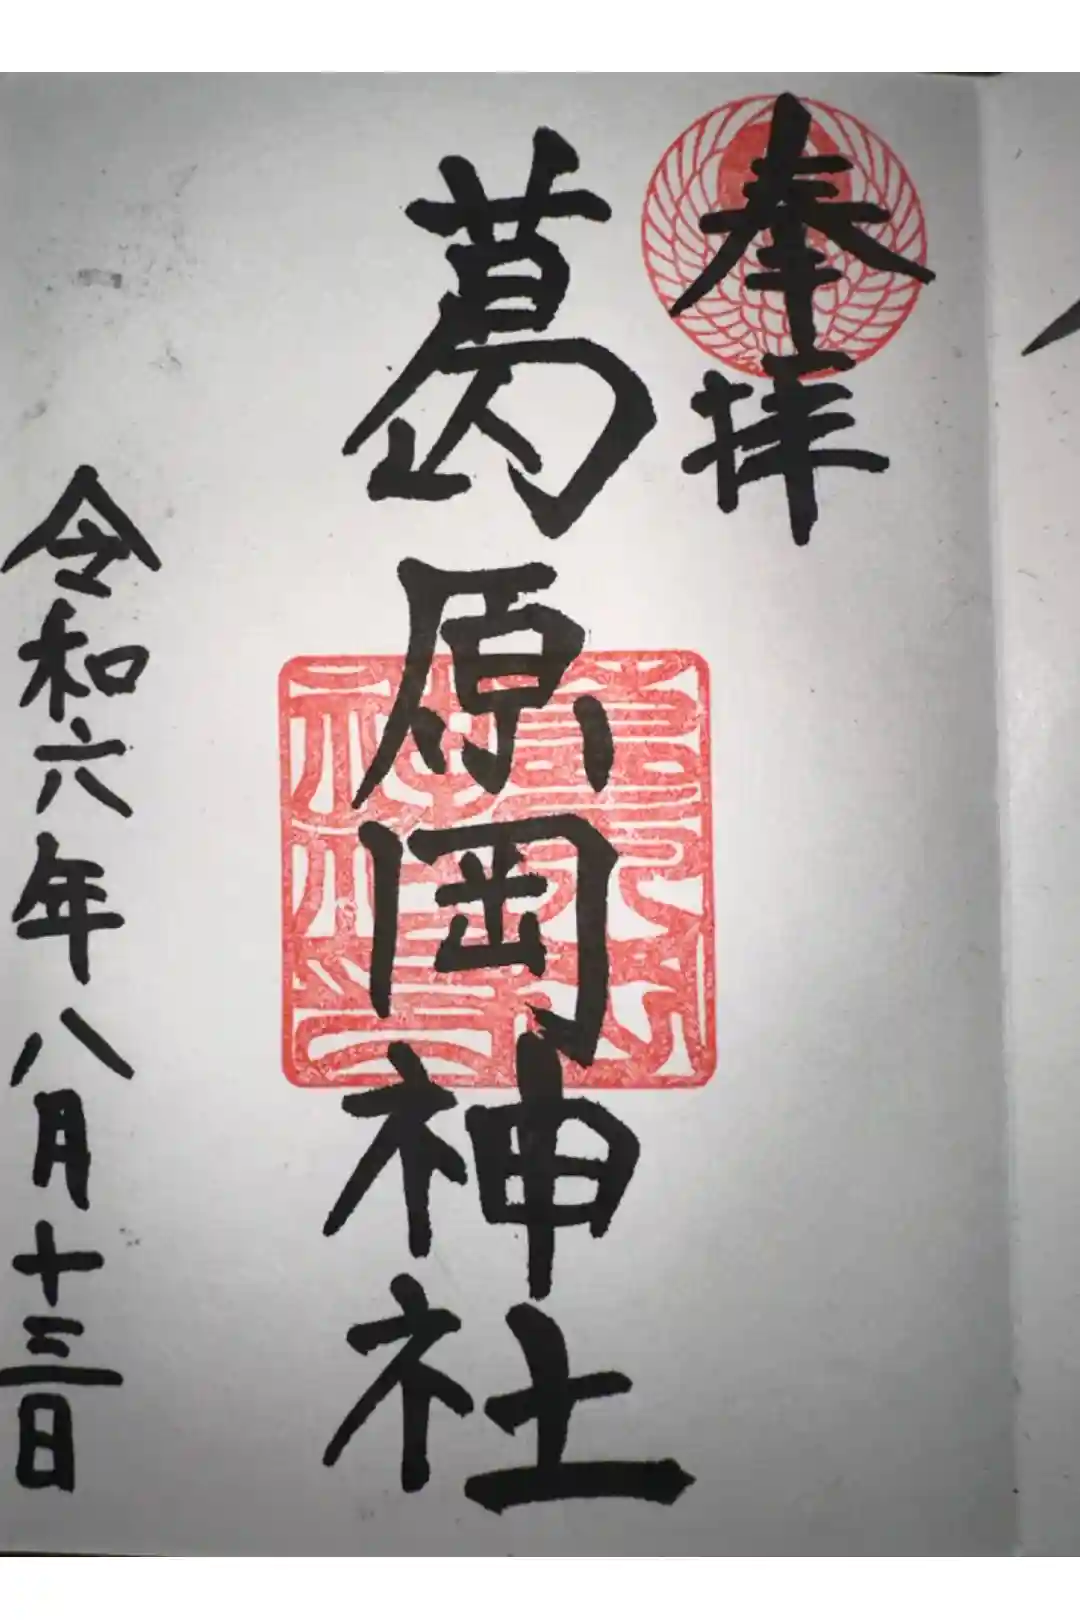 奉拝
葛原岡神社
令和六年八月十三日